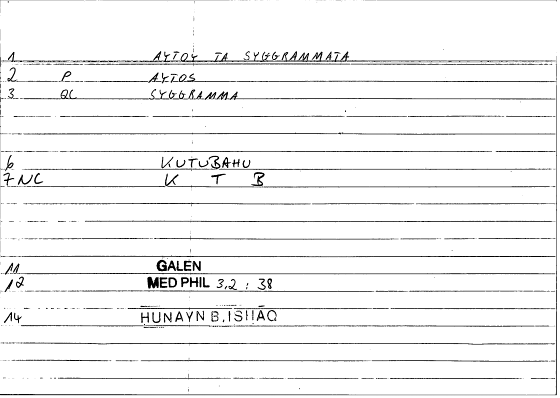 1 AYTOY TA SYGGRAMMATA
2 P AYTOS
3 QC SYGGRAMMA
6 KUTUBAHU
7 NC K T B
11 GALEN
12 MED PHIL 3,2 : 38
14 HUNAYN B. ISḤĀQ